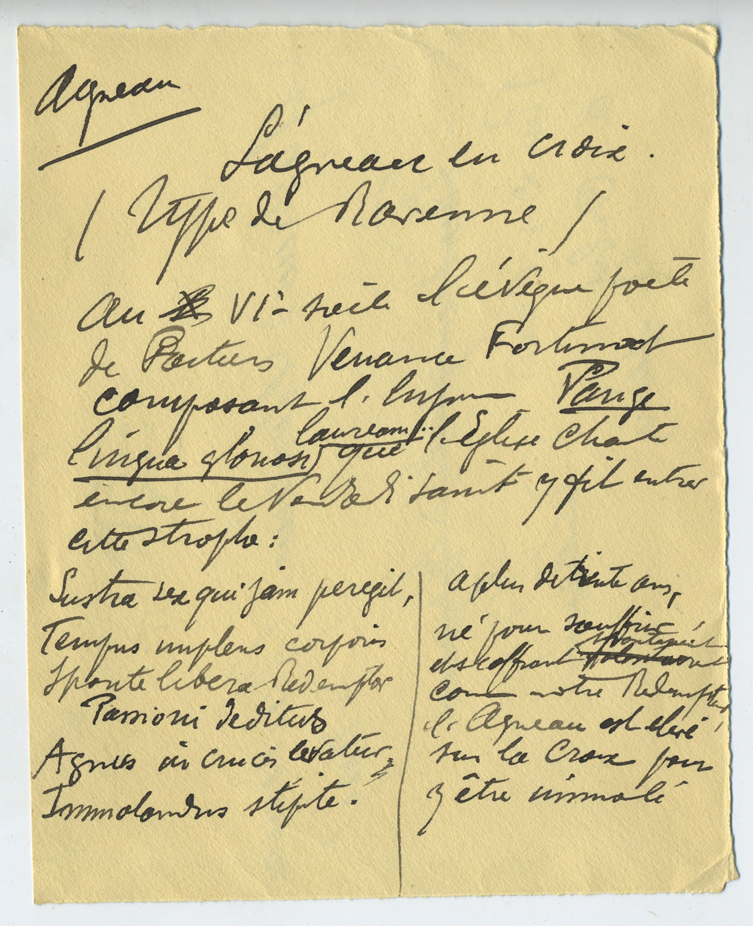 Agneau
L'agneau en croix.
(Type de Ravenne)
Au VIe siècle l'évêque poète
de Poitiers Venance Fortunat
composant l'hymne Pange
lingua gloriosi lauream.. que l'Eglise chante
encore le Vendredi saint y fit entrer
cette strophe :
Lustra sex qui jam peregit,
Tempus implens corporis
Sponte libera Redemptor
Passioni deditus
Agnus in crucis levatur
Immolandus stipite.
A plus de trente ans,
né pour souffrir
et s'offrant spontanément
comme notre Redempteur,
l'Agneau est élevé
sur la Croix pour
y être immolé